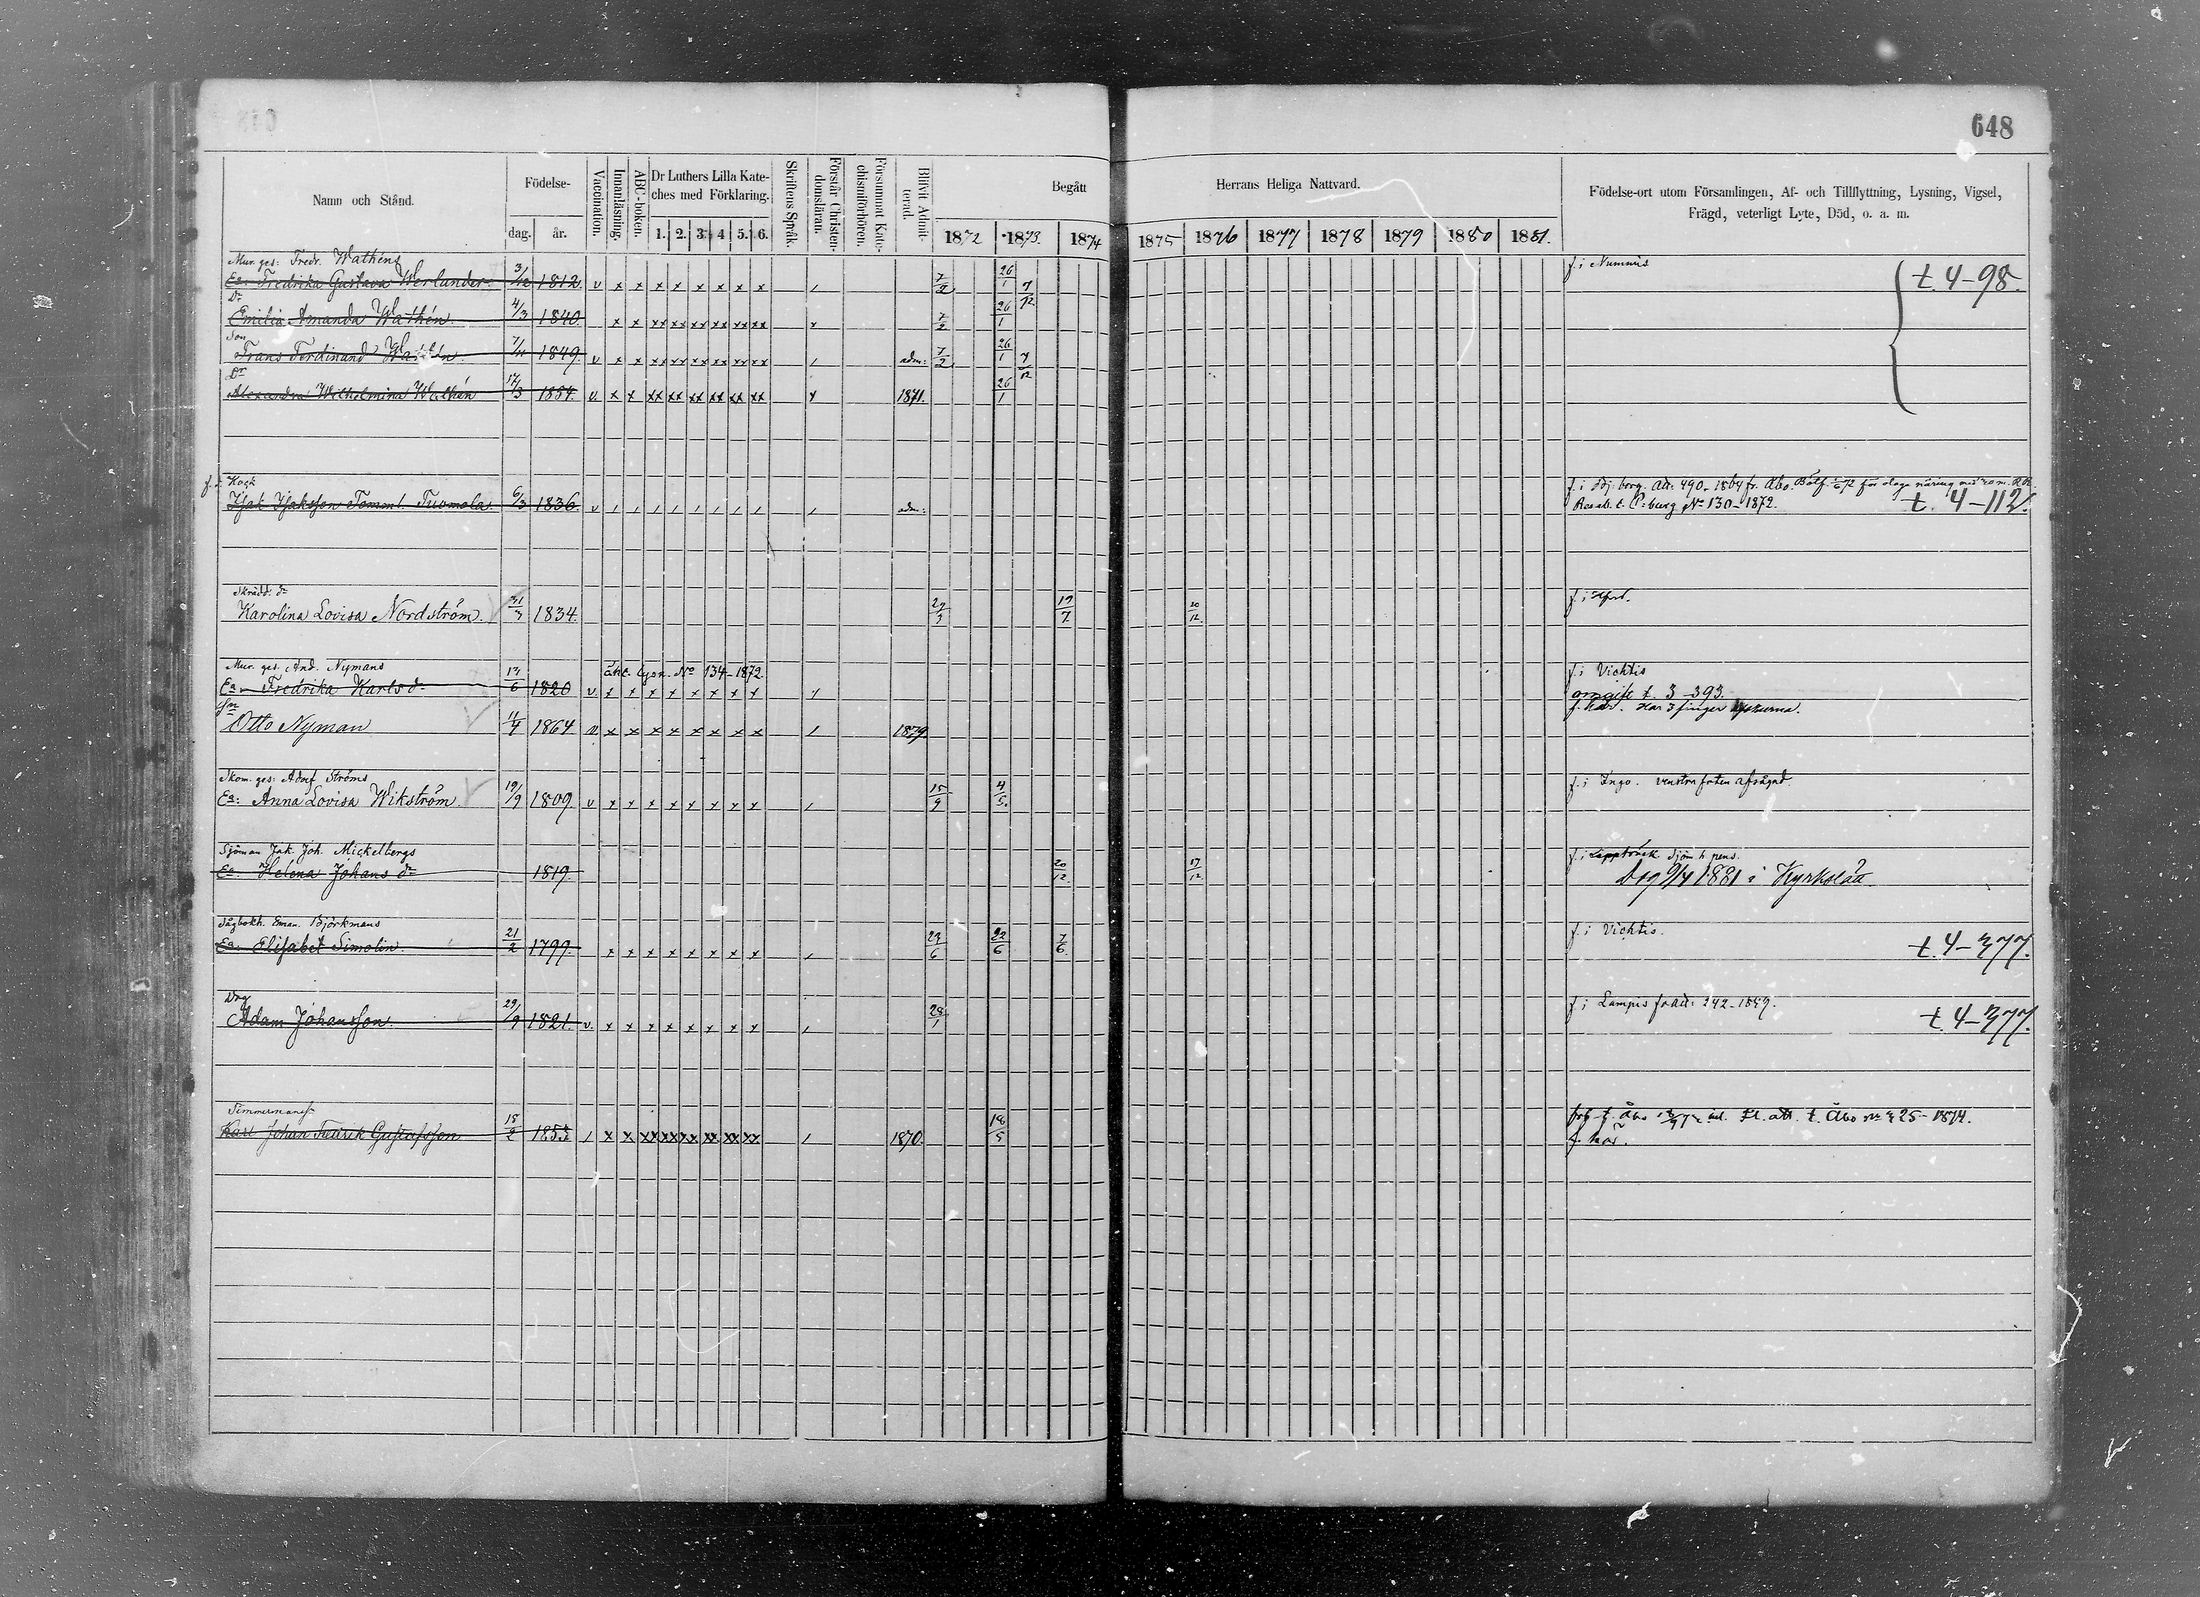 648
Namn och Stånd.
Födelse-
dag. år.
Vaccination.
Innanläsning.
ABC-boken.
Dr Luthers Lilla Kate-
ches med Förklaring.
1. 2. 3. 4 5. 6.
Skriftens Språk.
Förstår Christen-
domsläran.
Försummat Kate-
chismiförhören.
Blifvit Admit-
terad.
Begått Herrans Heliga Nattvard.
1872 1873. 1874 1875 1876 1877 1878 1879 1880 1881.
Födelse-ort utom Församlingen, Af- och Tillflyttning, Lysning, Vigsel,
Frägd, veterligt Lyte, Död, o. a. m.
Mur. ges: Fredr. Wathéns
Ea: Fredrika Gustava Werlander 3/12 1812 v x x x x x x x x 7/2 26/1 7/12 f. i Nummis t. 4-98.
Dr
Emilia Amanda Wathén. 4/3 1840. x x xx xx xx xx xx xx x 7/2 26/1
Son
Frans Ferdinand Wathén. 7/11 1849. v x x xx xx xx xx xx xx adm: 7/2 26/1 7/12
Dr
Alexandra Wilhelmina Wathén 17/3 1854. v x x xx xx xx xx xx xx x 1871. 26/1
Kock
Isak Isaksson Tomml. Tuomola 6/3 1836 v adm: f. i Bj:borg. Att. 490-1864 fr. Åbo.
Res att. t. P:burg No 130-1872. t. 4-112.
Skrädd. dr
Karolina Lovisa Nordström. 31/3 1834. 19/7 20/12
Mur. ges. And. Nymans äkt. lysn. No 134-1872. f. i Vichtis
Ea Fredrika Karlsdr 1820 v x x x x x x x x omgift t. 3-393.
Sn
Otto Nyman 11/4 1864 v x x x x x x x x 1879. Har 3 finger
Skom. ges: Adolf Ströms
Ea: Anna Lovisa Wikström 19/9 1809. v x x x x x x x x 15/9 4/5. f. i Ingo. venstra foten afsågad.
Sjöman Jak. Joh. Mickelbergs
Ea. Helena Johansdr 1819. 20/12. 17/12 Sjöm. h. pens.
1881 i Kyrkslätt
Sågbokh. Eman. Björkmans
Ea: Elisabet Simolin. 21/2 1799. x x x x x x x x 29/6 22/6 7/6. f. i Vichtis. t. 4-377.
Drg
Adam Johansson. 29/9 1821. v. x x x x x x x x 28/1 f. i Lampis fr att: 242-1849. t. 4-377.
Timmermansl.
Karl Johan Fredrik Gustafsson 15/2 1853 x x xx xx xx xx xx xx 1870. 18/5 att. t. Åbo